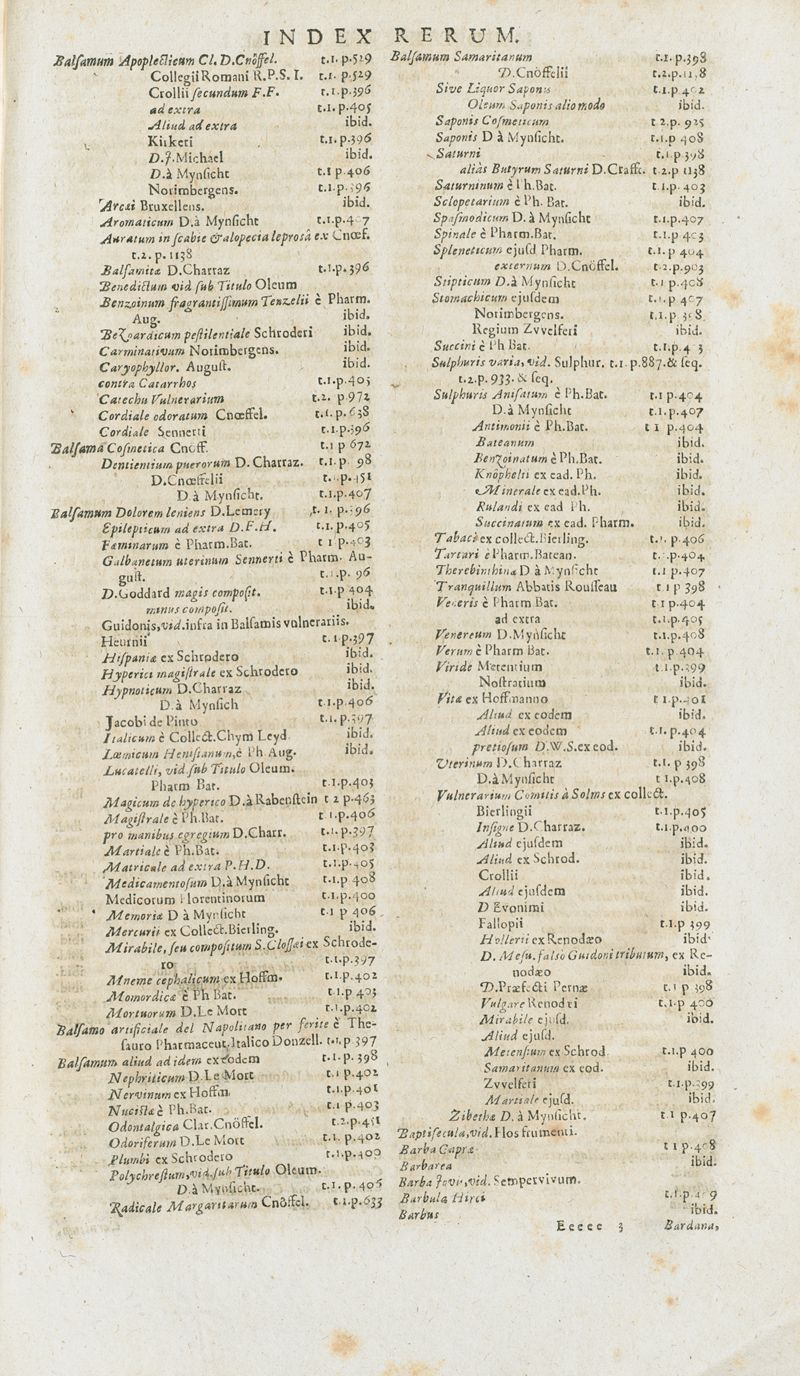 INDEX RERUM.
Balsamum Apoplecticum Cl. D. Cnöffel. t.1. p.529
Collegii Romani R.P.S. I. t.1. p.529
Crollii secundum F.F. t.1.p.396
ad extra t.1. p.405
Aliud ad extra ibid.
Kiikeri t.1. p.396
D.J. Michael ibid.
D.à Mynsicht t.1 p.406
Norimbergens. t.1.p.396
Arcæi Bruxellens. ibid.
Aromaticum D.à Mynsicht t.1.p.4 7
Auratum in scabie & alopecia leprosâ ex Cnœf.
t.2. p. 1138
Balsamitæ D.Charraz t.1.p.396
Benedictum vid sub Titulo Oleum
Benzoinum fragrantissimum Tenzelii è Pharm.
Aug. ibid.
Bezoardicum pestilentiale Schroderi ibid.
Carminativum Norimbergens. ibid.
Caryophyllor. August. ibid.
contra Catarrhos t.1.p.405
Catechu Vulnerarium t.2. p.972
Cordiale odoratum Cnœffel. t.1. p.638
Cordiale Sennerti t.1.p.396
Balsama Cosmetica Cnöff. t.1 p 672
Dentientium puerorum D. Charraz. t.1. p. 98
D.Cnœffelii p.451
D à Mynsicht. t.1.p.407
Balsamum Dolorem leniens D.Lemery t. 1. p.396
Epilepticum ad extra D.F.H. t.1. p.405
Fæminarum è Pharm.Bat. t 1 p.403
Galbanetum uterinum Sennerti è Pharm. Au-
gust. p. 96
D.Goddard magis composit. t.1.p 404
minus composit. ibid.
Guidonis, vid. infra in Balsamis vulnerariis.
Heurnii t.1.p.397
Hispaniæ ex Schrodero ibid.
Hyperici magistrale ex Schrodero ibid.
Hypnoticum D.Charraz ibid.
D.à Mynsich t.1.p.406
Jacobi de Pinto t.1. p.397
Italicum è Collect.Chym Leyd. ibid.
Læmicum Henisianum, è Ph Aug. ibid.
Lucatelli, vid. sub Titulo Oleum.
Pharm Bat. t.1.p.403
Magicum de hyperico D.à Rabenstein t 2 p.463
Magistrale è Ph.Bat. t 1.p.406
pro manibus egregium D.Charr. t.1. p.397
Martiale è Ph.Bat. t.1.p.403
Matricale ad extra P.H.D. t.1.p.405
Medicamentosum D.à Mynsicht t.1.p 408
Medicorum Florentinorum t.1.p.400
Memoriæ D à Mynsicht t.1 p 406
Mercurii ex Collect.Bierling. ibid.
Mirabile, seu compositum S.Clossæi ex Schrode-
ro t.1.p.397
Mneme cephalicum ex Hoffm. t.1.p.402
Momordicæ è Ph Bat. t 1.p 403
Mortuorum D.Le Mort t.1.p.402
Balsamo artificiale del Napolitano per ferite è The-
sauro Pharmaceut.Italico Donzell. t.1. p 397
Balsamum aliud ad idem ex eodem t.1. p. 398
Nephriticum D.Le Mort t.1 p.402
Nervinum ex Hoffm t.1.p.401
Nucistæ è Ph.Bat. t.1 p.403
Odontalgica Clar.Cnöffel. t.2.p.451
Odoriferum D.Le Mort t.1. p.402
Plumbi ex Schrodero t.1.p.400
Polychrestum, vid. sub Titulo Oleum.
D.à Mynsicht. t.1. p. 405
Radicale Margaritarum Cnöffel. t.1.p.633
Balsamum Samaritanum t.1. p.398
D.Cnöffelii t.2.p.1138
Sive Liquor Saponis t.1.p.402
Oleum Saponis alio modo ibid.
Saponis Cosmeticum t 2.p. 925
Saponis D à Mynsicht. t.1.p 408
Saturni t.1 p 398
aliàs Butyrum Saturni D.Crafft. t.2.p 1138
Saturninum è Ph.Bat. t.1.p. 403
Sclopetarium è Ph. Bat. ibid.
Spasmodicum D. à Mynsicht t.1.p.407
Spinale è Pharm.Bat. t.1.p 403
Spleneticum ejusd Pharm. t.1. p 404
externum D.Cnöffel. t.2.p.903
Stipticum D.à Mynsicht t.1 p.408
Stomachicum ejusdem t.1.p 407
Norimbergens. t.1.p.398
Regium Zvvelferi ibid.
Succini è Ph Bat. t.1.p.4 3
Sulphuris varia, vid. Sulphur. t.1. p.887. & seq.
t.2.p. 933. & seq.
Sulphuris Anisatum è Ph.Bat. t.1 p.404
D.à Mynsicht t.1.p.407
Antimonii è Ph.Bat. t 1 p.404
Bateanum ibid.
Benzoinatum è Ph.Bat. ibid.
Knöphelii ex ead. Ph. ibid.
Minerale ex ead.Ph. ibid.
Rulandi ex ead Ph. ibid.
Succinatum ex ead. Pharm. ibid.
Tabaci ex collect.Bierling. t.1. p.406
Tartari è Pharm.Batean. p.404
Therebinthinæ D à Mynsicht t.1 p.407
Tranquillum Abbatis Rousseau t 1 p 398
Veneris è Pharm Bat. t 1 p.404
ad extra t.1.p.405
Venereum D.Mynsicht t.1.p.408
Verum è Pharm Bat. t.1. p 404
Viride Metentium t.1.p.399
Nostratium ibid.
Vitæ ex Hoffmanno t 1.p.401
Aliud ex eodem ibid.
Aliud ex eodem t.1. p.404
pretiosum D.W.S.ex eod. ibid.
Uterinum D.Charraz t.1. p 398
D.à Mynsicht t 1.p.408
Vulnerarium Comitis à Solms ex collect.
Bierlingii t.1.p.405
Insigne D.Charraz. t.1.p.400
Aliud ejusdem ibid.
Aliud ex Schrod. ibid.
Crollii ibid.
Aliud ejusdem ibid.
D Evonimi ibid.
Fallopii t.1.p 399
Hollerii ex Renodæo ibid.
D. Mesu. falsò Guidoni tributum, ex Re-
nodæo ibid.
D.Præfecti Pernæ t.1 p 398
Vulgare Renodæi t.1.p 400
Mirabile ejusd. ibid.
Aliud ejusd.
Metensium ex Schrod. t.1.p 400
Samaritanum ex eod. ibid.
Zvvelferi t.1.p.399
Martiale ejusd. ibid.
Zibethæ D. à Mynsicht. t.1 p.407
Baptisecula, vid. Flos frumenti.
Barba Capræ t 1 p.408
Barbarea ibid.
Barba Jovis, vid. Sempervivum.
Barbula Hirci t.1.p.4 9
Barbus ibid.
Eeeee 3 Bardana,